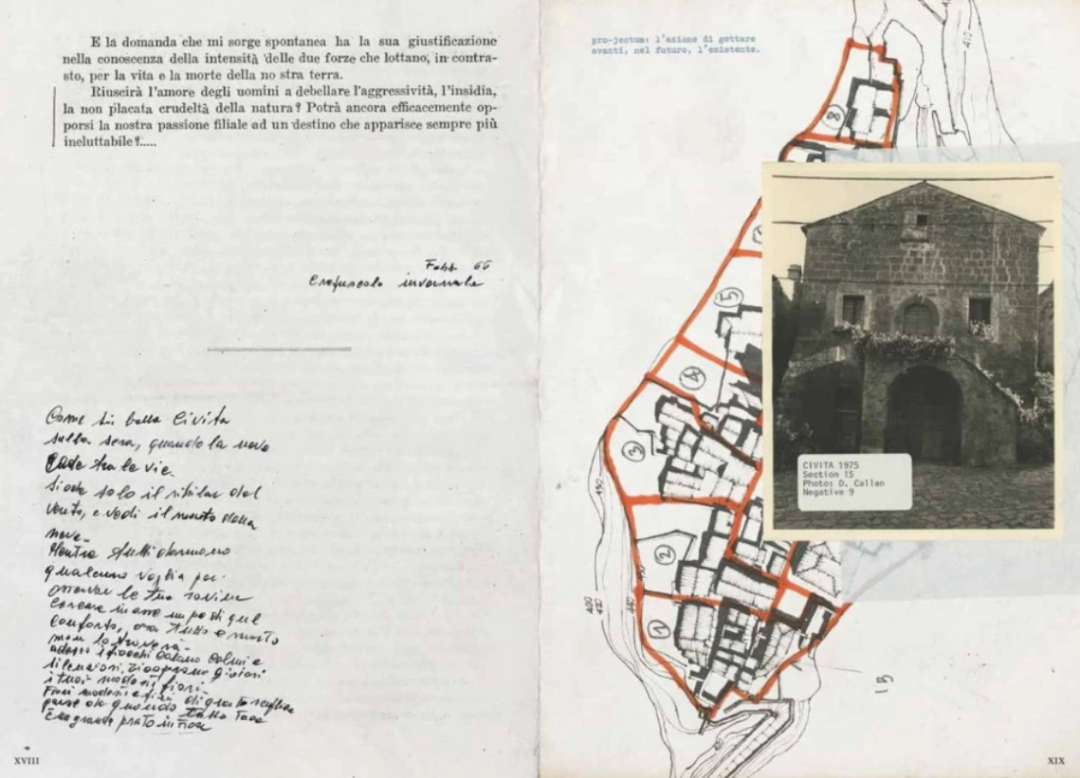 E la domanda che mi sorge spontanea ha la sua giustificazione
nella conoscenza della intensità delle due forze che lottano, in contra-
sto, per la vita e la morte della no stra terra.
Riuscirà l'amore degli uomini a debellare l'aggressività, l'insidia,
la non placata crudeltà della natura? Potrà ancora efficacemente op-
porsi la nostra passione filiale ad un destino che apparisce sempre più
ineluttabile?.....
Febb. 66
Crepuscolo invernale
Come sei bella Civita
sulla sera, quando la neve
cade tra le vie.
Si ode solo il sibilar del
vento, e vedi il manto della
neve.
Mentre tutti dormono
qualcuno veglia per
le tue rovine
conforto, ora tutto è morto
non lo troverà
adesso i fiocchi calmi e
silenziosi, ricoprono
i tuoi modesti fiori.
Fiori modesti e
quando tutto tace
È un grande prato in fiore
XVIII
pro-jectum: l'azione di gettare
avanti, nel futuro, l'esistente.
410
8
5
4
3
2
1
430
400
420
440
15
CIVITA 1975
Section 15
Photo: D. Callan
Negative 9
XIX